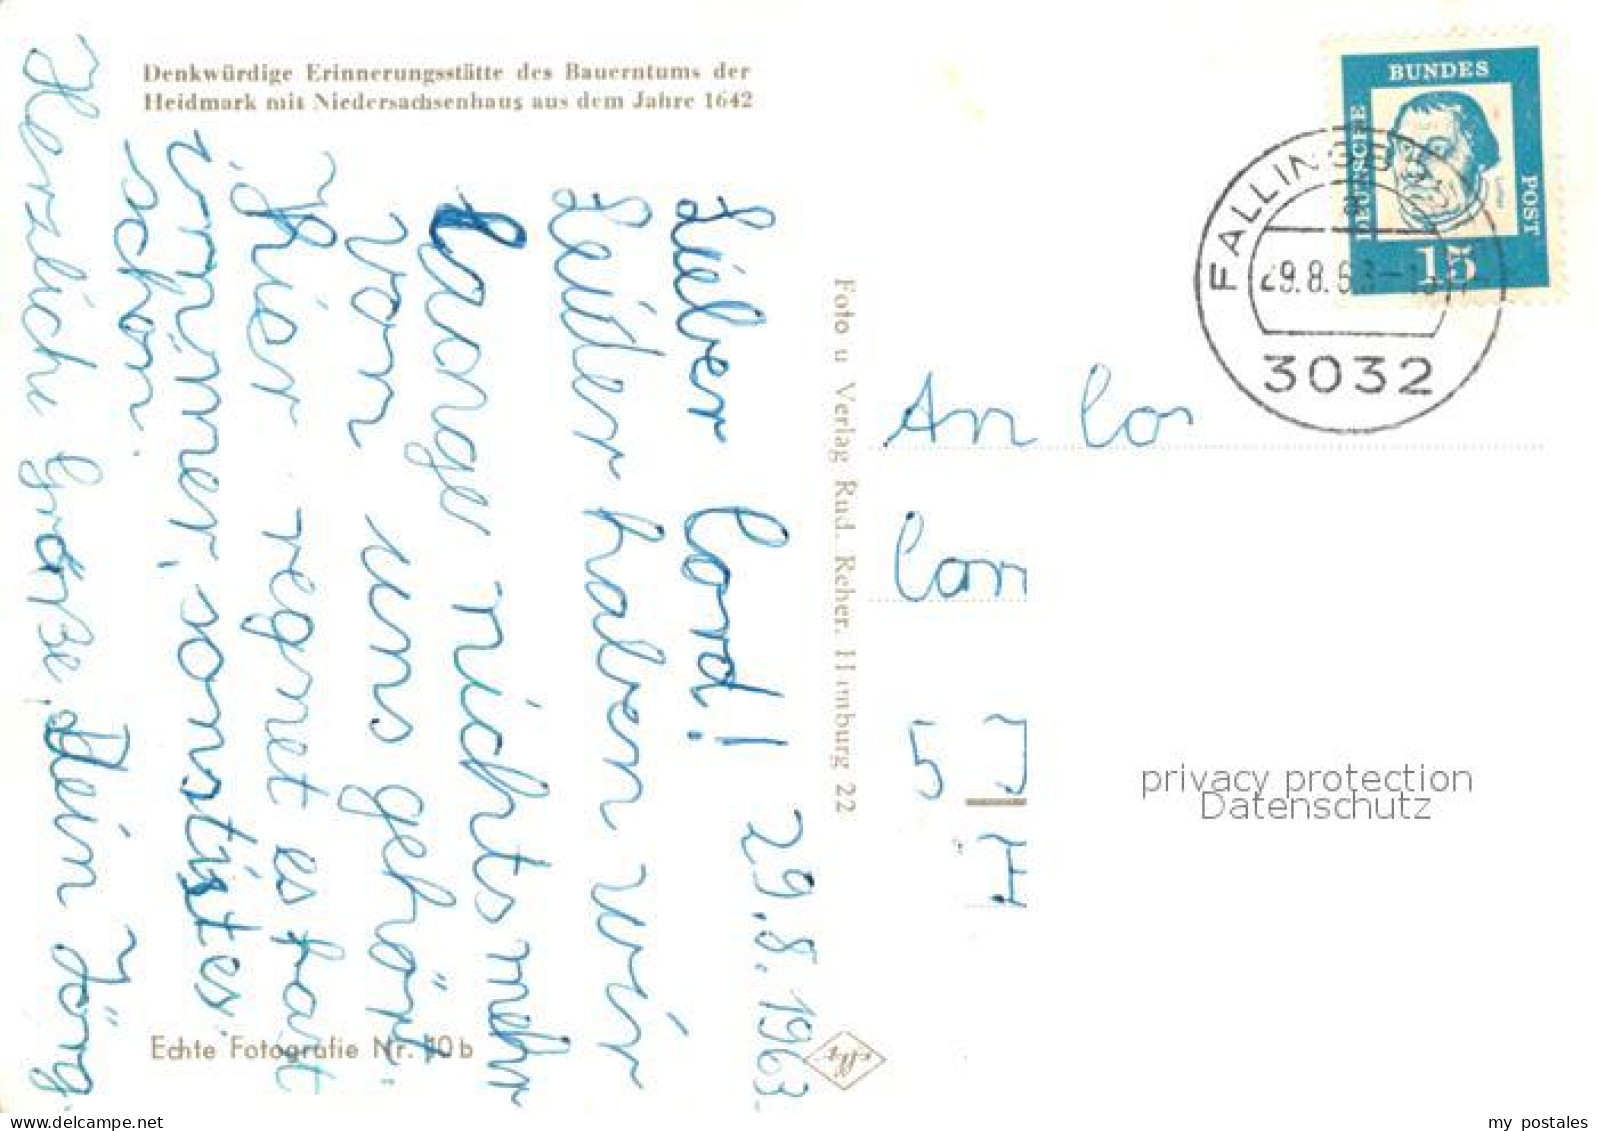 Denkwürdige Erinnerungsstätte des Bauerntums der
Heidmark mit Niedersachsenhaus aus dem Jahre 1642
29.8.1963
Lieber Cord!
Leider haben wir
lange nichts mehr
von uns gehört.
Hier regnet es fast
immer, sonst ist es
schön.
Herzliche Grüße, Dein Jörg
Echte Fotografie Nr. 10 b
Foto u Verlag Rud. Reher. Hamburg 22
DEUTSCHE
BUNDES
POST
15
Luther
FALLINGB
29.8.6
3032
An Co
Cam
5
privacy protection
Datenschutz
delcampe.net
my_postales